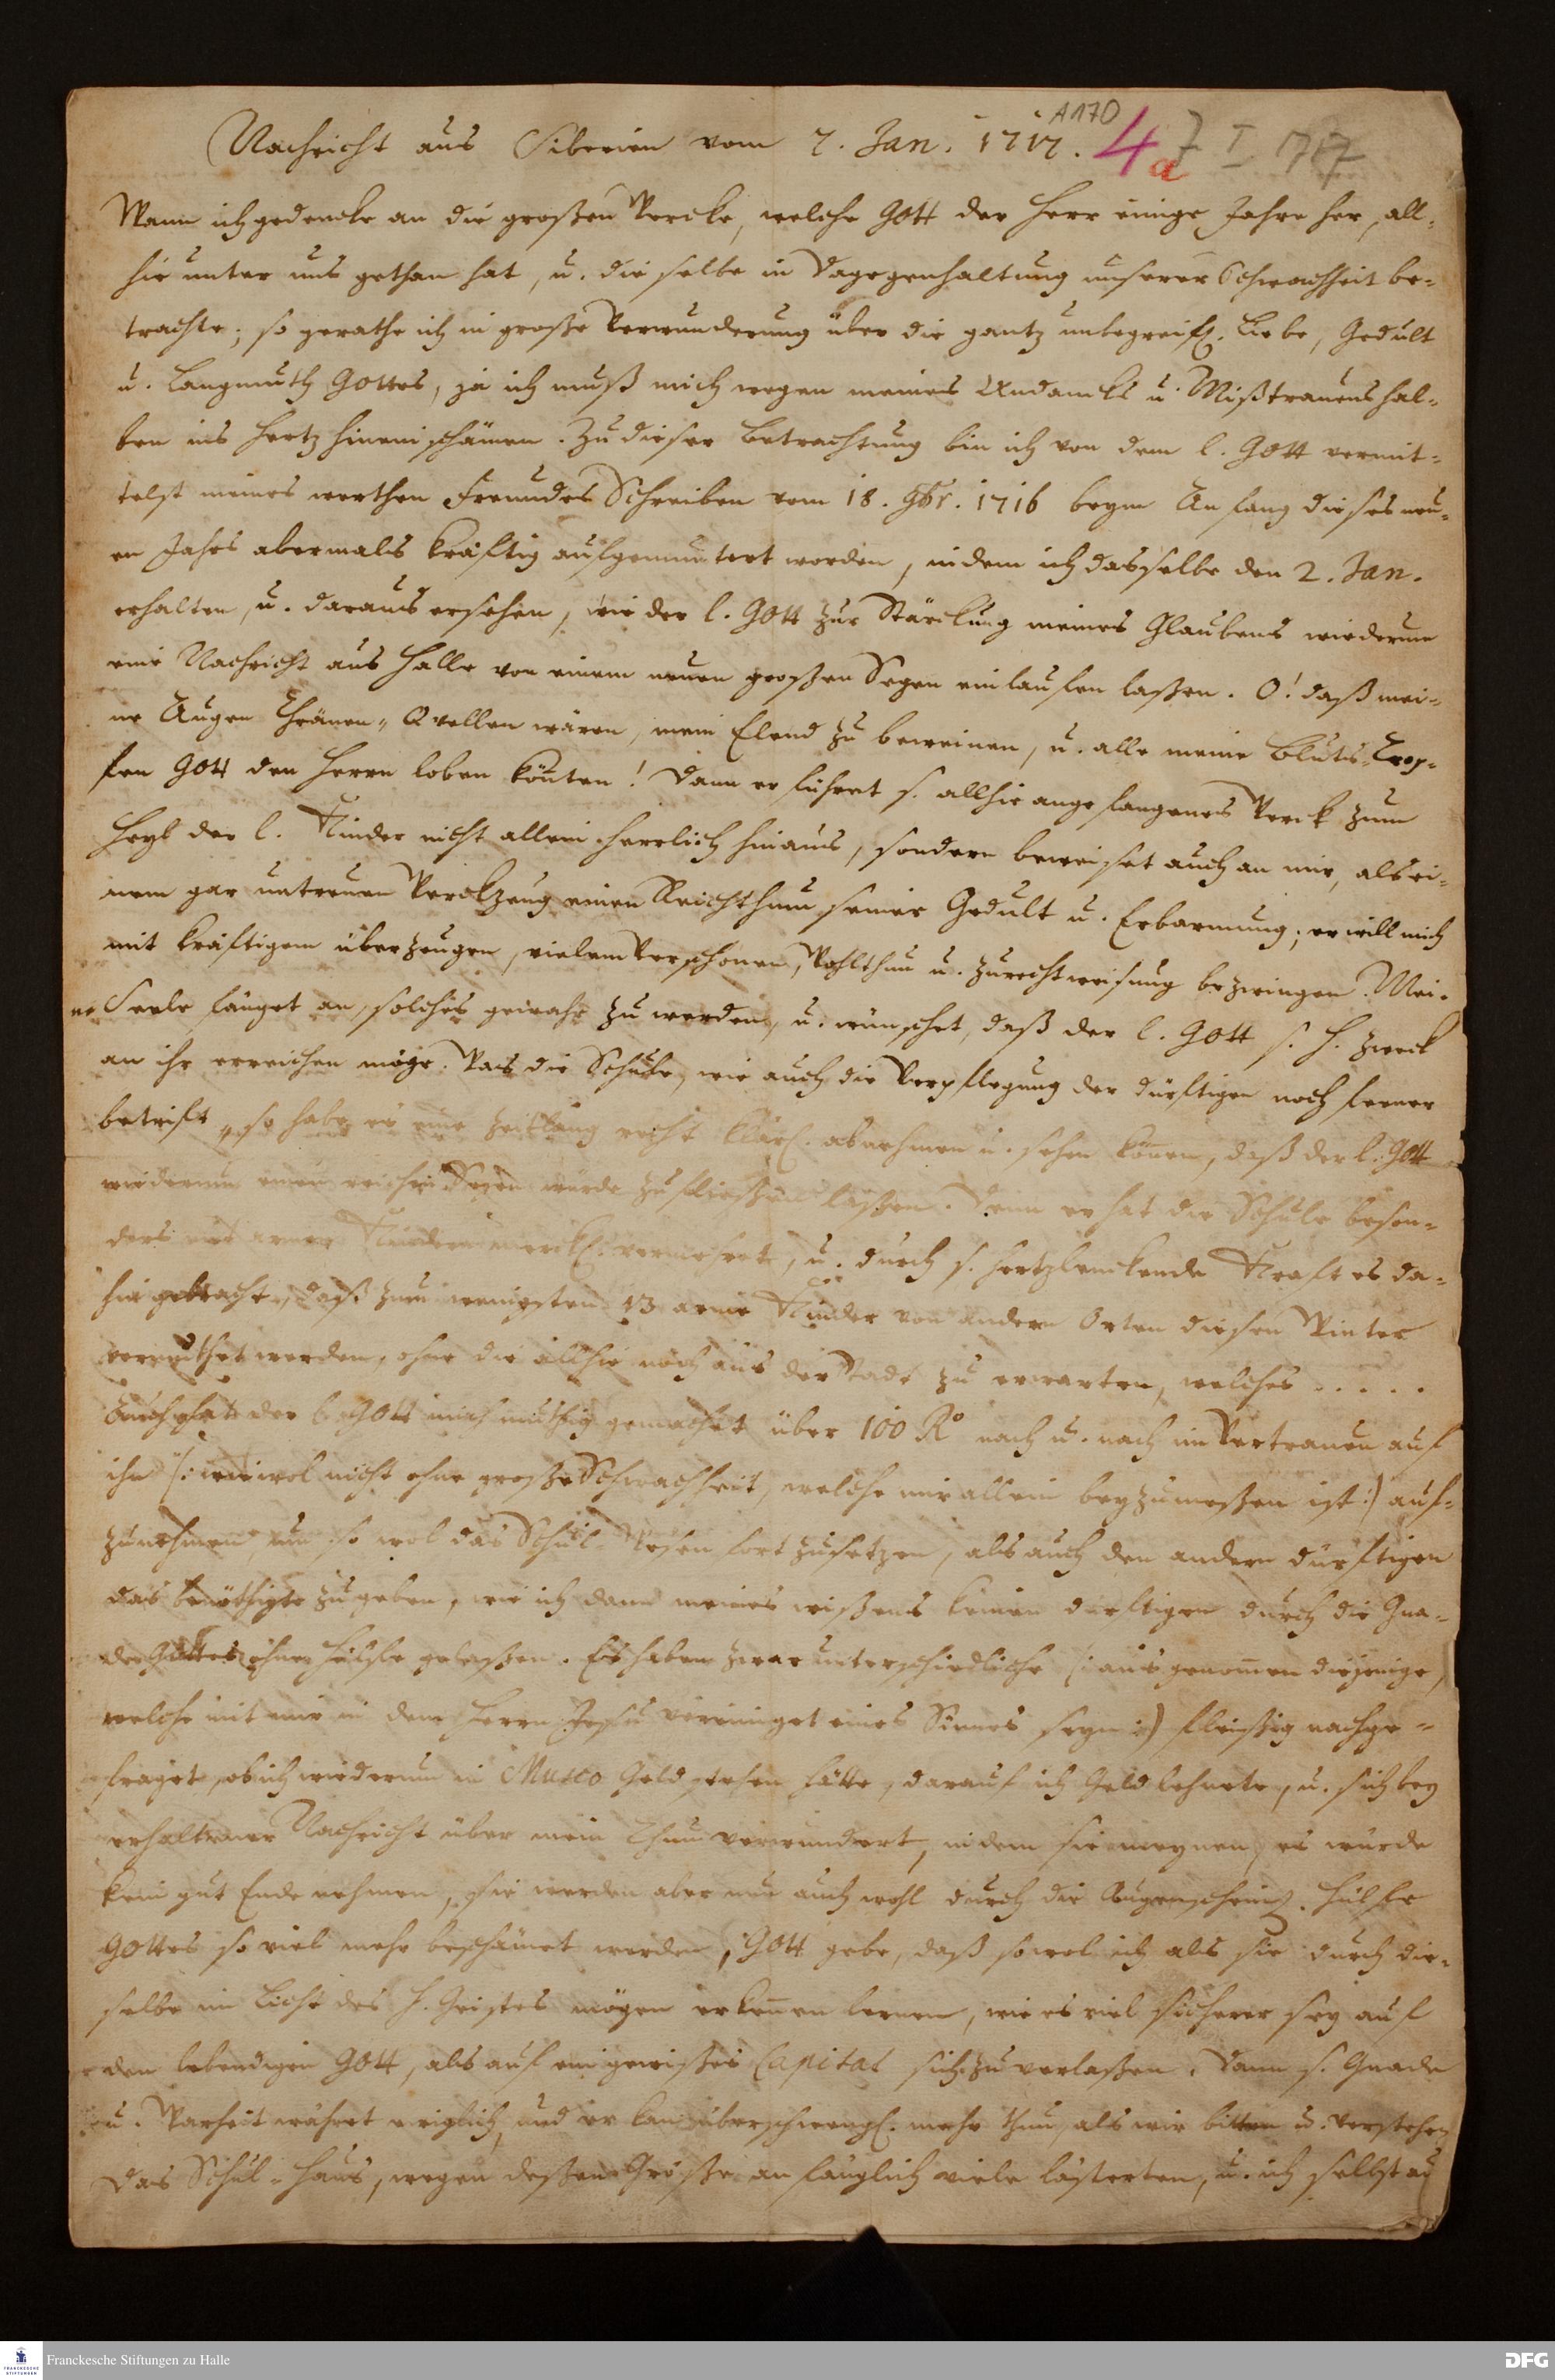 A170
Nachricht aus Siberien vom 7. Jan. 1717. 4a 7 I 717
Wann ich gedencke an die großen Wercke, welche Gott der Herr einige Jahre her, all-
hie unter uns gethan hat, u. dieselbe in Dagegenhaltung unserer Schwachheit be-
trachte; so gerathe ich in große Verwunderung über die gantz unbegreifl. Liebe, Gedult
u. Langmuth Gottes, ja ich muß mich wegen meines Undancks u. Mißtrauens hal-
ben ins Hertz hinein schämen. Zu dieser Betrachtung bin ich von dem l. Gott vermit-
telst meines werthen Freundes Schreiben vom 18. 9br. 1716 beym Anfang dieses neu-
en Jahrs abermals kräftig aufgemuntert worden, indem ich dasselbe den 2. Jan.
erhalten, u. daraus ersehen, wie der l. Gott zur Stärckung meines Glaubens wiederum
eine Nachricht aus Halle von einem neuen großen Segen einlaufen laßen. O! daß mei-
ne Augen Thränen-Qvellen wären, mein Elend zu beweinen, u. alle meine Bluts-Trop-
fen Gott den Herrn loben könten! Dann er führet s. allhie angefangenes Werck zum
Heyl der l. Kinder nicht allein herrlich hinaus, sondern beweiset auch an mir, als ei-
nem gar untreuen Werckzeug einen Reichthum seiner Gedult u. Erbarmung; er will mich
mit kräftigem überzeugen, vielem Verschonen, Wohlthun u. Zurechtweisung bezwingen. Mei-
ne Seele fänget an, solches gewahr zu werden, u. wünschet, daß der l. Gott s. H. Zweck
an ihr erreichen möge. Was die Schule, wie auch die Verpflegung der dürftigen noch ferner
betrift, so habe es eine Zeitlang recht klärl. abnehmen u. sehen können, daß der l. Gott
wiederum einen reichen Segen würde zufließen laßen. Denn er hat die Schule beson-
ders mit armen Kindern merckl. vermehret, u. durch s. Hertzlenckende Kraft es da-
hin gebracht, daß zum wenigsten 13 arme Kinder von andern Orten diesen Winter
vermuthet werden, ohne die allhie noch aus der Stadt zu erwarten, welches . . . . .
Auch hat der l. Gott mich muthig gemachet über 100 R° nach u. nach im Vertrauen auf
ihn (: wiewol nicht ohne große Schwachheit, welche mir allein beyzumeßen ist :) auf-
zunehmen, um so wol das Schul-Wesen fortzusetzen, als auch den andern dürftigen
das benöthigte zugeben, wie ich dann meines wißens keinen dürftigen durch die Gna-
de Gottes ohne Hülfe gelaßen. Es haben zwar unterschiedliche (: ausgenommen diejenige,
welche mit mir in dem Herrn Jesu vereiniget eines Sinnes seyn :) fleißig nachge-
fraget, ob ich wiederum in Musco Geld stehen hätte, darauf ich Geld lehnete, u. sich bey
erhaltener Nachricht über mein Thun verwundert, indem sie meynen, es würde
kein gut Ende nehmen, sie werden aber nun auch wohl durch die Augenscheinl. Hülfe
Gottes so viel mehr beschämet werden, Gott gebe, daß sowol ich als sie durch die-
selbe im Licht des H. Geistes mögen erkennen lernen, wie es viel sicherer sey auf
den lebendigen Gott, als auf ein gewißes Capital sich zu verlaßen. Dann s. Gnade
u. Warheit währet ewiglich, und er kan überschwengl. mehr thun, als wir bitten u. verstehen
Das Schul-Haus, wegen deßen Größe anfänglich viele lästerten, u. ich selbst au
Franckesche Stiftungen zu Halle
DFG